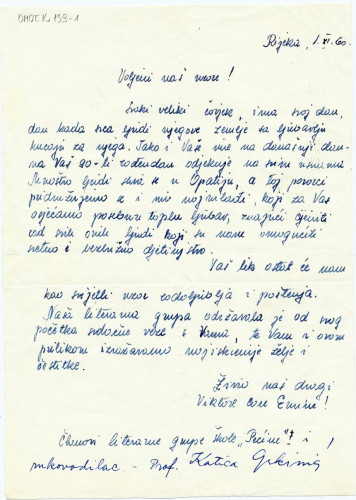 OMOT K 199-1
Rijeka, 1. XI. 60.
Voljeni naš uzore!
Svaki veliki čovjek, ima svoj dan,
dan kada srca ljudi njegove zemlje sa ljubavlju
kucaju za njega. Tako i Vaše ime na današnji dan-
na Vaš 90-ti rođendan odjekuje na svim usnama
Mnoštvo ljudi slava se u Opatiju, a toj povorci
pridružujemo se i mi najmlađi, koji za Vas
osjećamo posebnu toplu ljubav, znajući cijeniti
od svih onih ljudi koji su nam omogućili
sretno i bezbrižno djetinjstvo.
Vaš lik ostat će nam
kao svijetli uzor rodoljublja i poštenja.
Naša literarna grupa održavala je od svog
početka srdačne veze s Vama, te Vam i ovom
prilikom izražavamo najiskrenije želje i
čestitke.
Živio naš dragi
Viktore Care Emine!
Članovi literarne grupe škole „Pećine" i
rukovodilac - Prof. Katica